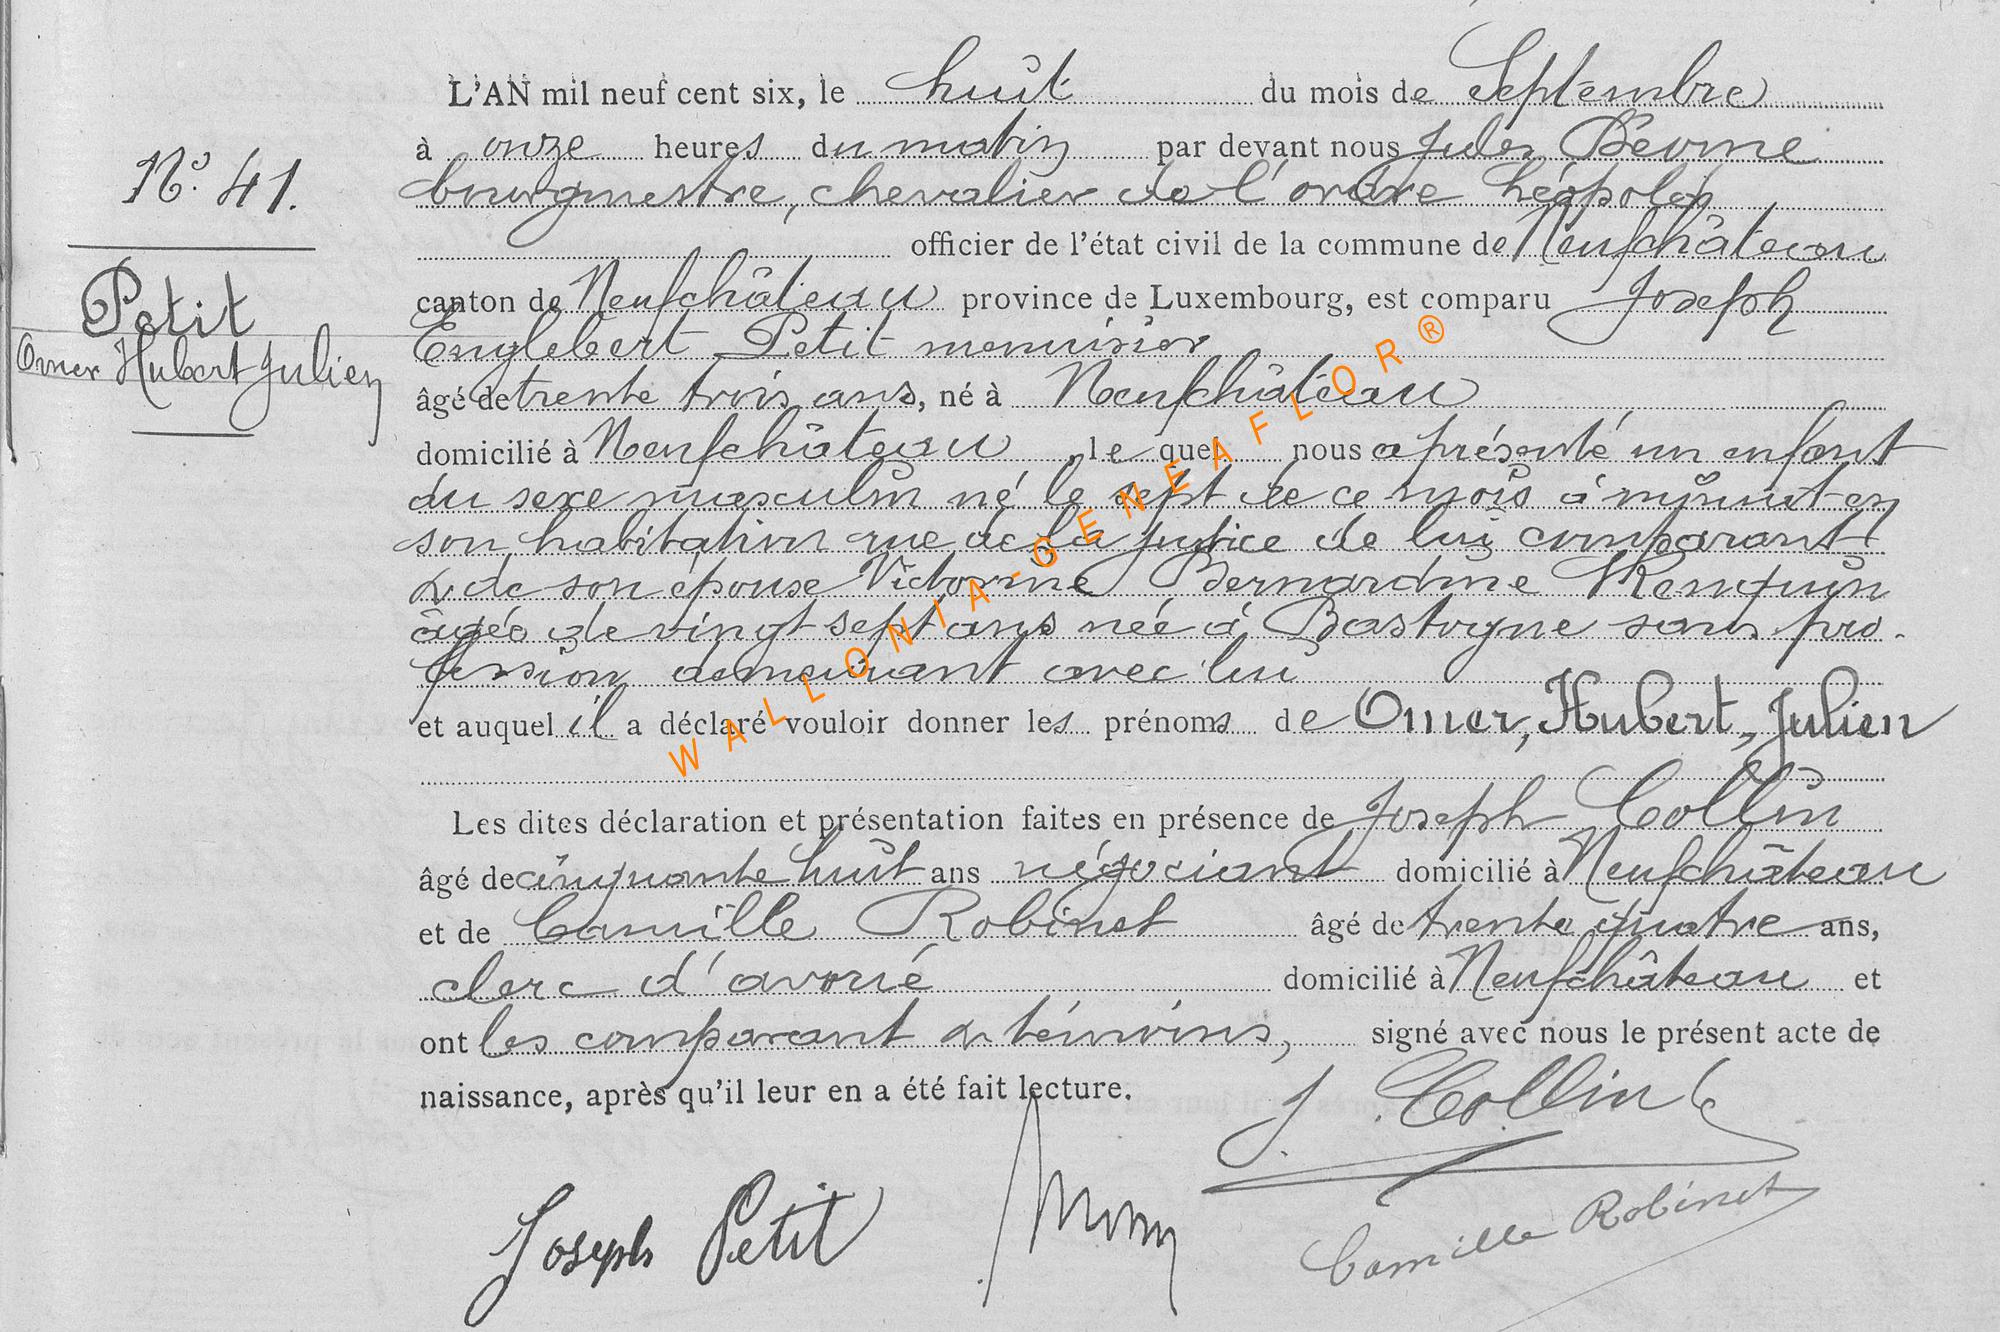 L'AN mil neuf cent six, le huit du mois de Septembre
à onze heures du matin par devant nous Jules
bourgmestre, chevalier de l'ordre Léopold
officier de l'état civil de la commune de Neufchâteau
N° 41.
canton de Neufchâteau province de Luxembourg, est comparu Joseph
Englebert Petit menuisier
Petit
Omer Hubert Julien
âgé de trente trois ans, né à Neufchâteau
domicilié à Neufchâteau, le quel nous a présenté un enfant
du sexe masculin né le sept de ce mois à minuit en
son habitation rue de la justice de lui comparant
& de son épouse Victorine Bernardine
âgée de vingt sept ans née à Bastogne sans pro-
fession demeurant avec lui
et auquel il a déclaré vouloir donner les prénoms de Omer, Hubert, Julien
Les dites déclaration et présentation faites en présence de Joseph Collin
âgé de cinquante huit ans négociant domicilié à Neufchâteau
et de Camille Robinet âgé de trente quatre ans,
clerc d'avoué domicilié à Neufchâteau et
ont les comparant & témoins, signé avec nous le présent acte de
naissance, après qu'il leur en a été fait lecture.
J. Collin
Joseph Petit
Camille Robinet
WALLONIA-GENEAFLOR®